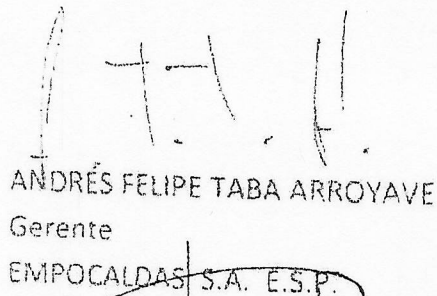 ANDRÉS FELIPE TABA ARROYAVE
Gerente
EMPOCALDAS S.A. E.S.P.